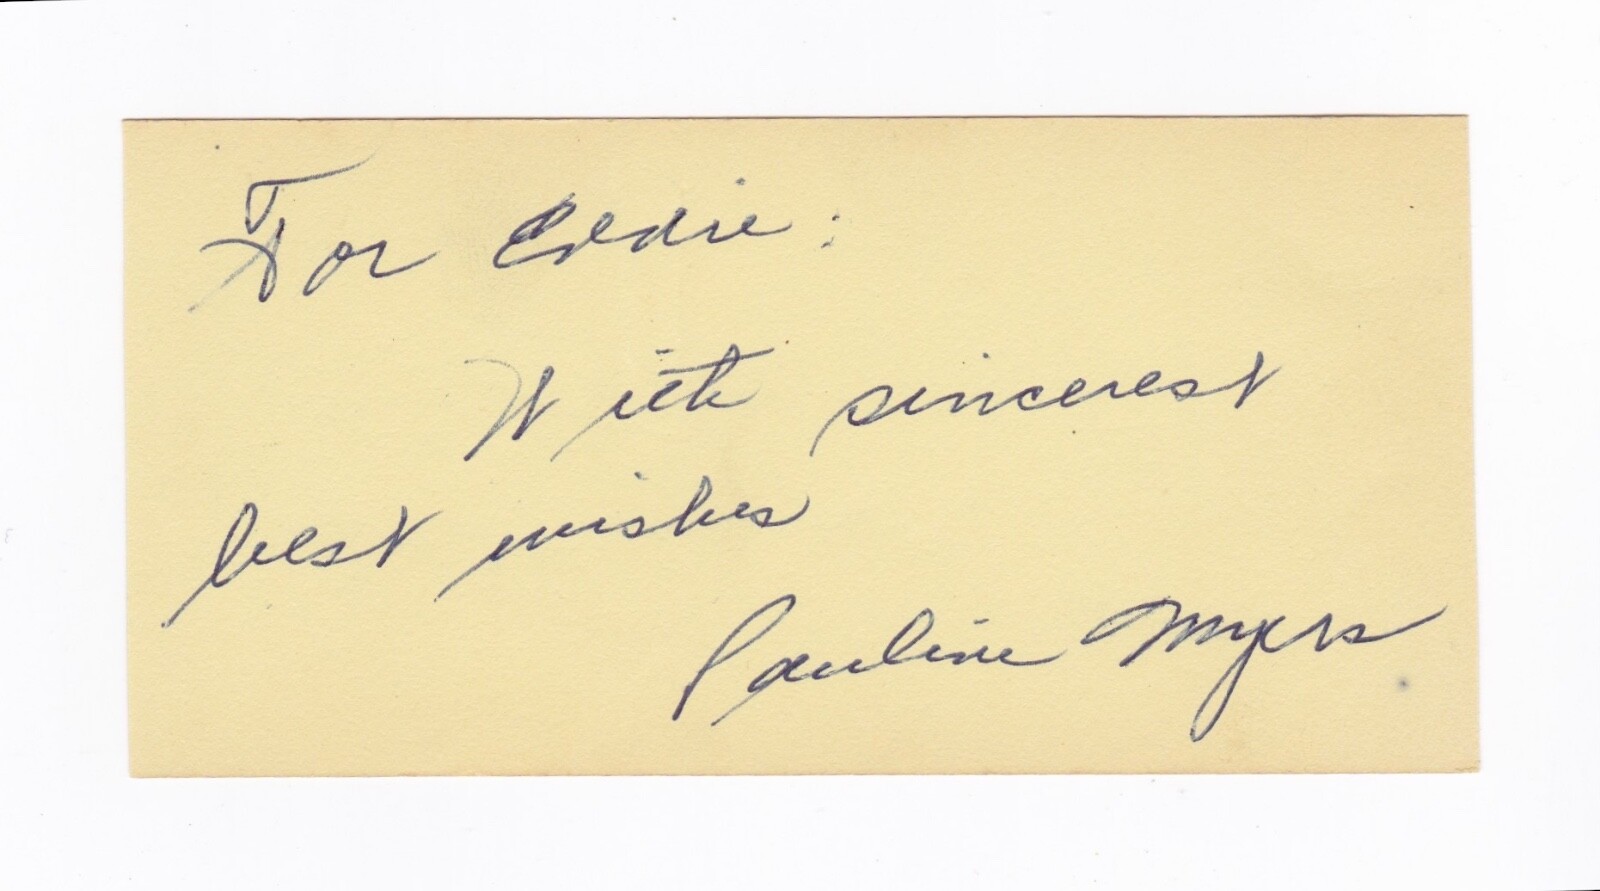 For Eddie:
With sincerest
best wishes
Pauline Myers